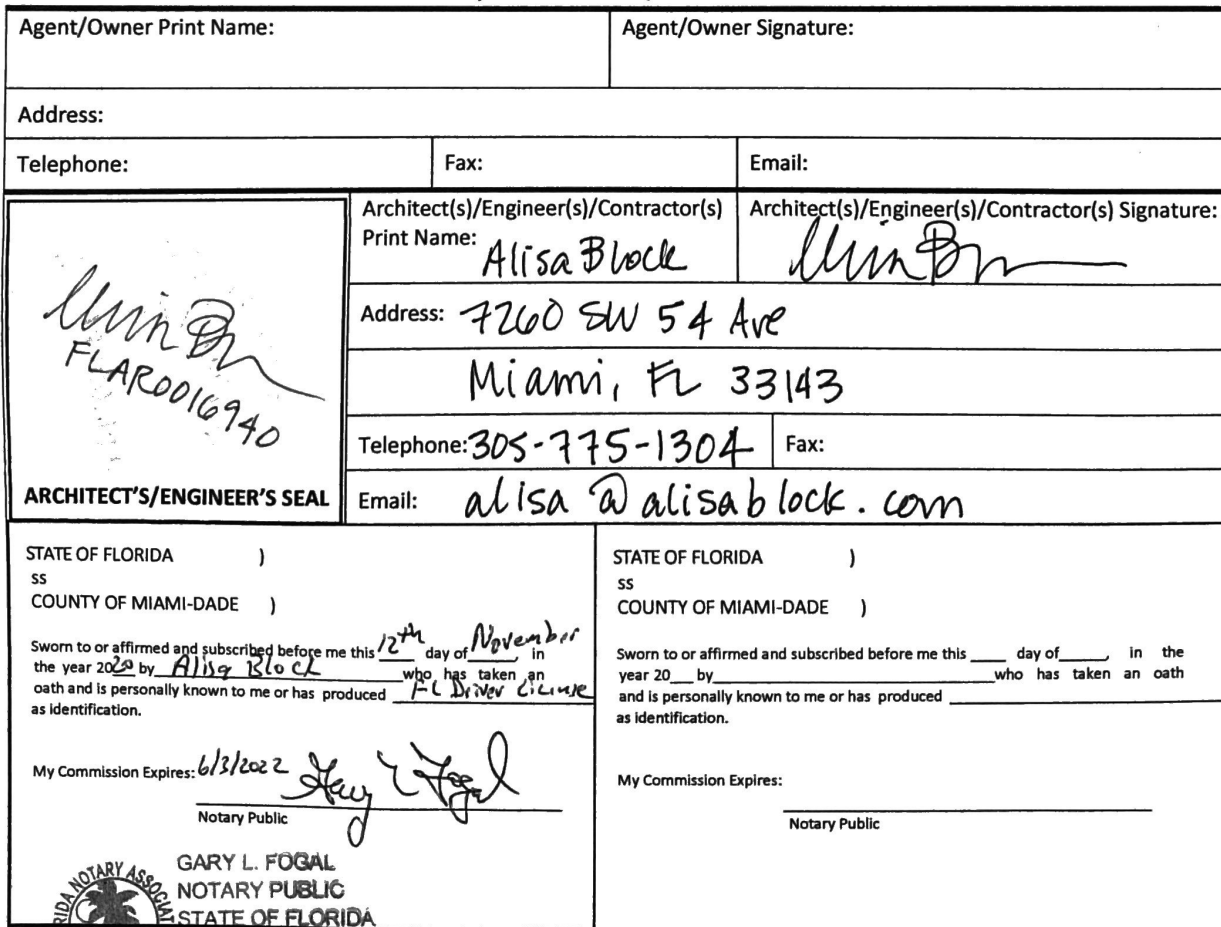 Agent/Owner Print Name:
Agent/Owner Signature:
Address:
Telephone:
Fax:
Email:
Architect(s)/Engineer(s)/Contractor(s)
Print Name: Alisa Block
Architect(s)/Engineer(s)/Contractor(s) Signature:
FLAR0016940
ARCHITECT'S/ENGINEER'S SEAL
Address: 7260 SW 54 Ave
Miami, FL 33143
Telephone: 305-775-1304
Fax:
Email: alisa @ alisablock.com
STATE OF FLORIDA )
ss
COUNTY OF MIAMI-DADE )
Sworn to or affirmed and subscribed before me this 12th day of November, in
the year 2020 by Alisa Block who has taken an
oath and is personally known to me or has produced FL Driver License
as identification.
My Commission Expires: 6/3/2022
Notary Public
GARY L. FOGAL
NOTARY PUBLIC
STATE OF FLORIDA
STATE OF FLORIDA )
ss
COUNTY OF MIAMI-DADE )
Sworn to or affirmed and subscribed before me this ____ day of_____, in the
year 20__ by__________who has taken an oath
and is personally known to me or has produced __________
as identification.
My Commission Expires:
Notary Public